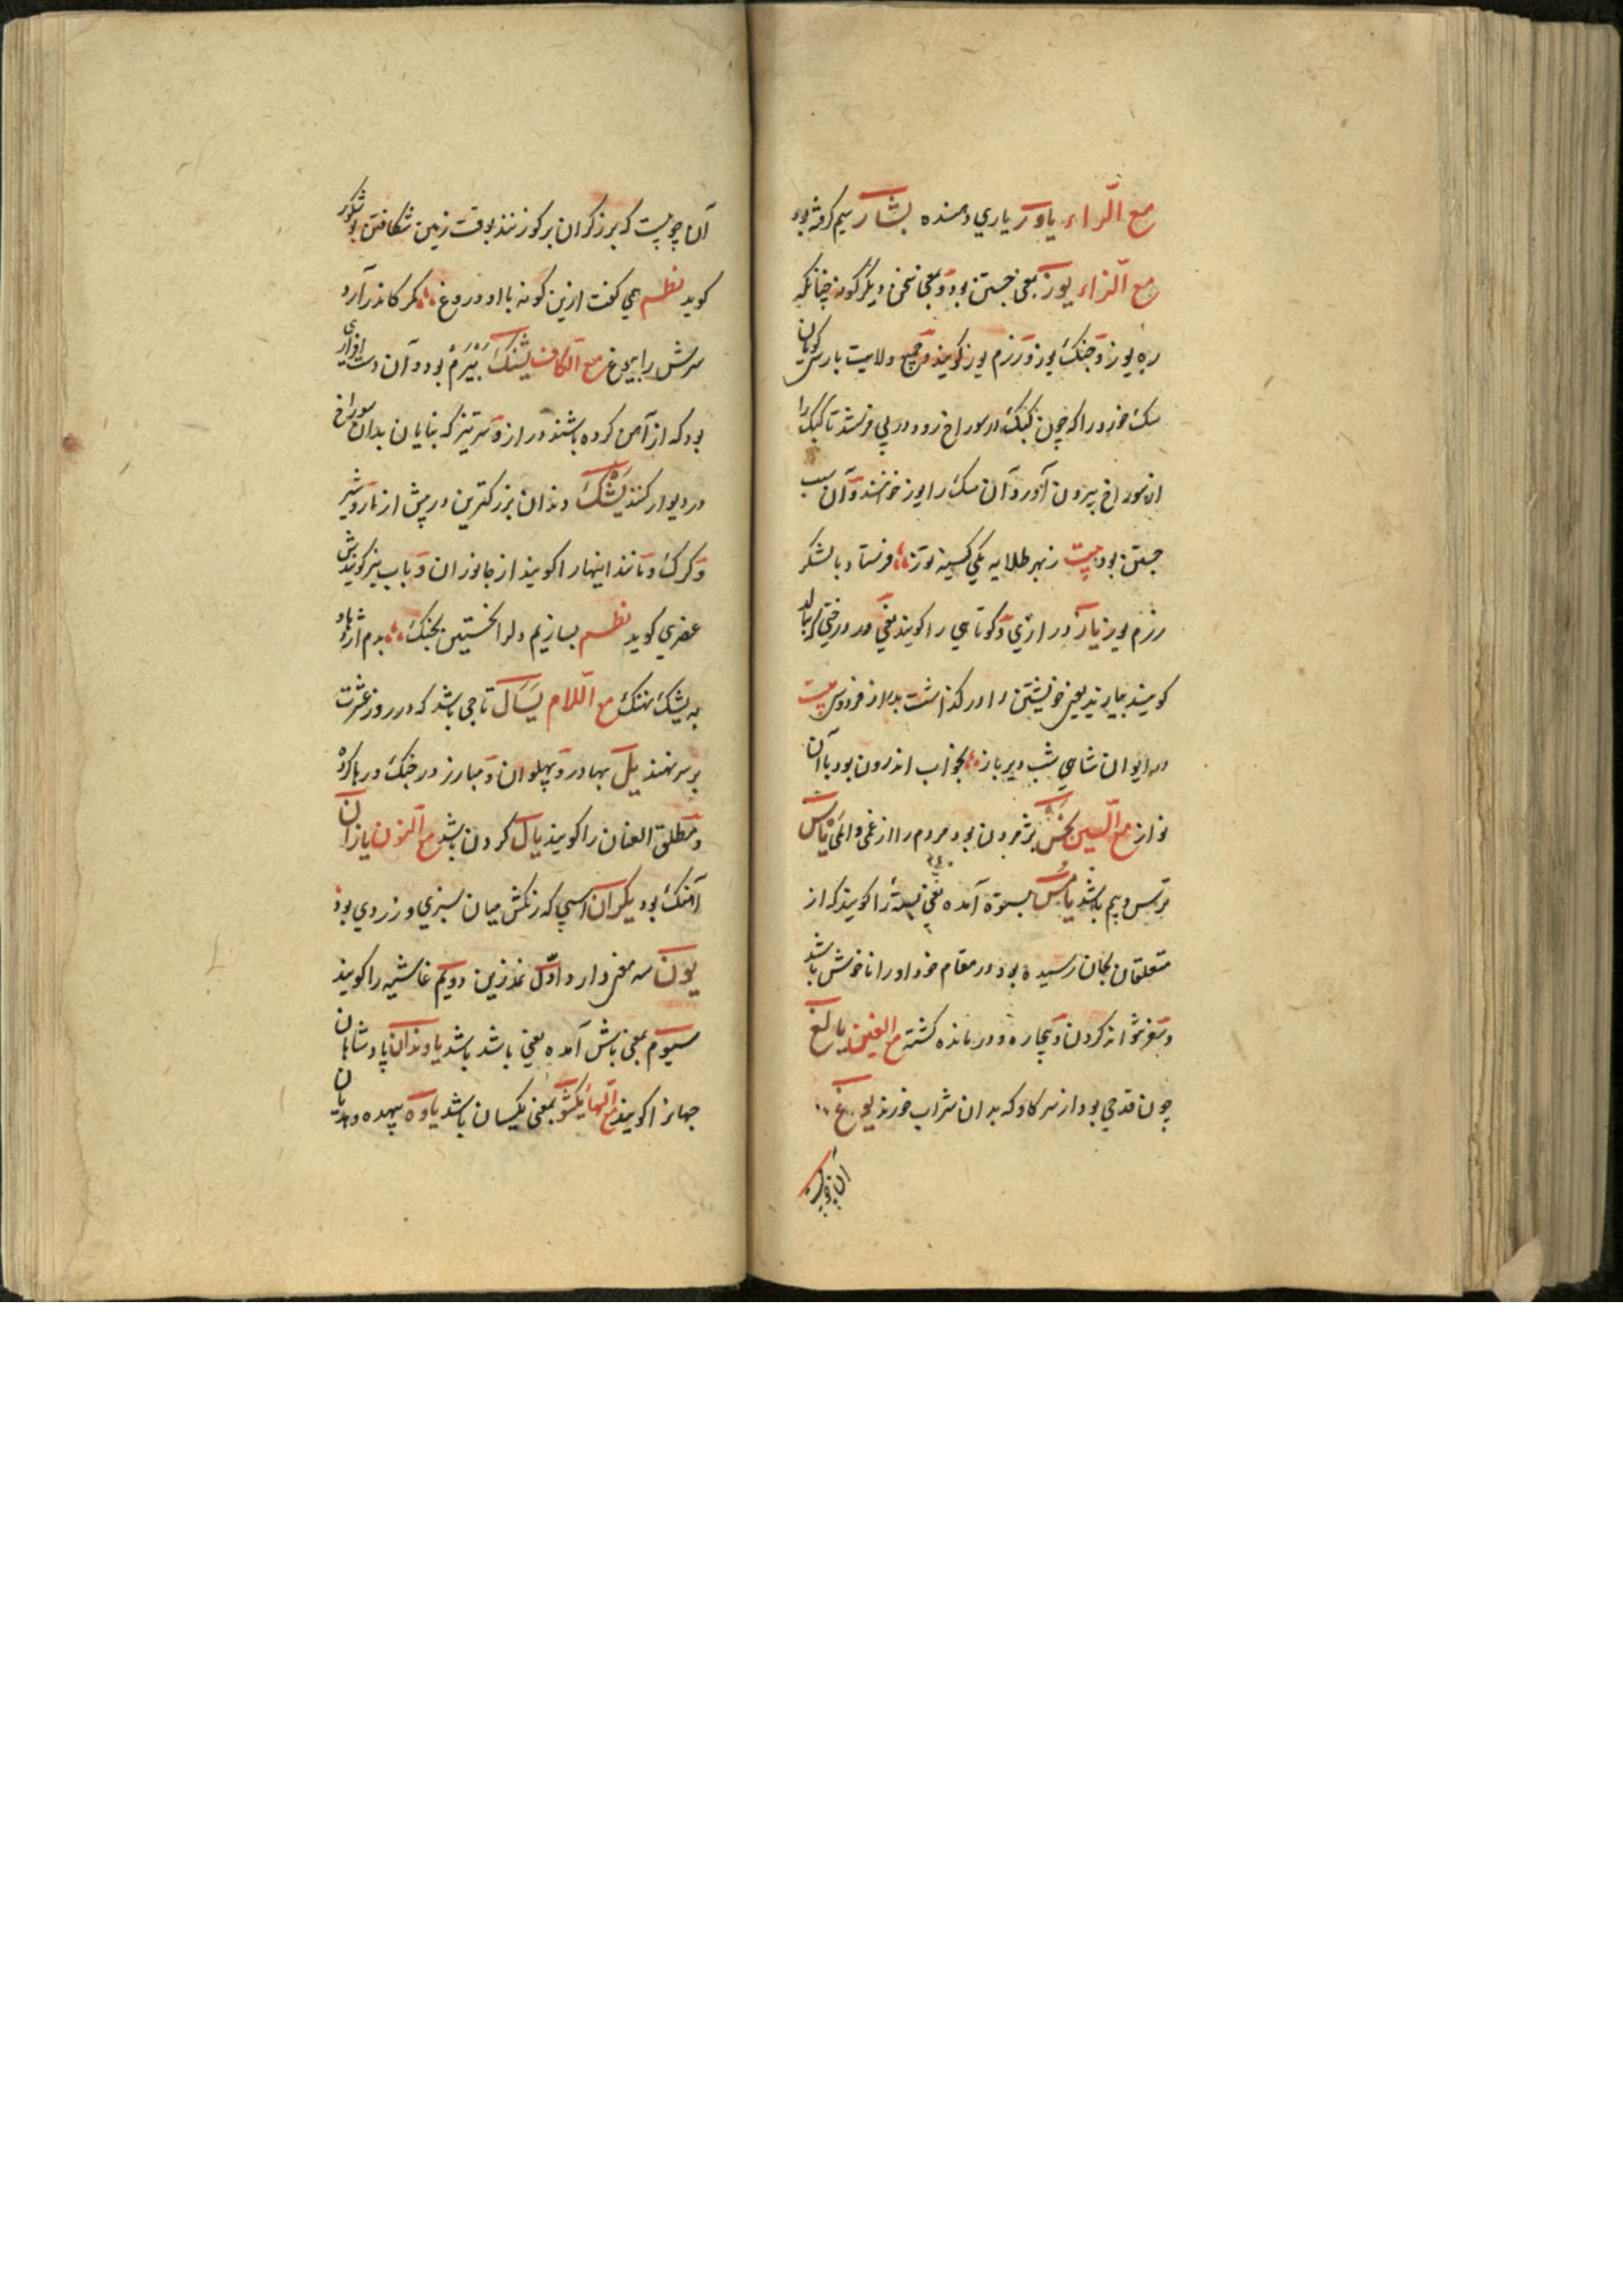 مع الراء یاور یاري دهنده بشار سیم کوفته بود
مع الزاء یوز بمعنی جستن بود و بمعنی سخن دیگر گونه چنانکه
ره یوز و جنگ یوز و رزم یوز گویند و جمیع ولایت پارس کوهیان
سگ خورد را که چون کبک در سوراخ رود در پی فرستند تا کبک را
از سوراخ بیرون آورد آن سگ را یوز خوانند و آن سبب
جستن بود بیت ز بهر طلایه یکی کینه توز فرستاد با لشکر
رزم یوز یاز درازي و کوتاهي را گویند یعنی هر درختی که ببالد
گویند بیازید یعنی خویشتن را در گذاشت بدراز فردوس بیت
در ایوان شاهي شب دیریاز بخواب اندرون بود با آن
نواز مع السین یخس پژمردن بود مردم را از غمی و المی یاس
ترس و بیم باشد یاس بستوه آمده یعنی بسته را گویند که از
متعلقان بجان رسیده بود در مقام خود او را ناخوش باشد
و سفر نتوانه کردن و بیچاره و درمانده گشته مع الغین یالغ
چون قدحي بود از سر گاو که بدان شراب خورند یوغ
آن چوبیست
آن چوبیست که برزگران بر گو زنند بوقت زمین شکافتن بوشکور
گوید نظم همي گفت ازین گونه با او دروغ مگر کاندر آرد
سرش را بیوغ مع الکاف یشنگ بیرم بود و آن دست افزاری
بود که از آهن کرده باشند دراز و سر تیز که بنایان بدان سوراخ
در دیوار کنند یشک دندان بزرگترین در پیش از مار و شیر
و گرگ و مانند اینها را گویند از جانوران و باب نیز گویندش
عنصري گوید نظم بسازیم دلرا نخستین بجنگ بدم اژدها و
به یشک نهنگ مع اللام یسال تاجي باشد که در روز عشرت
بر سر نهند یل بهادر و پهلوان و مبارز در جنگ و رها کرده
و مطلق العنان را گویند یال گردن باشد مع النون یازان
آهنگ بود یکران اسپی که رنگش میان سبزي و زردي بود
یون سه معنی دارد اول نمدزین دویم غاشیه را گویند
سیوم بمعنی باش آمده یعنی باشد باشد یاوندان پادشاهان
جهانرا گویند مع الهاء یکشو بمعنی یکسان باشد یاوه بیهده و هذیان